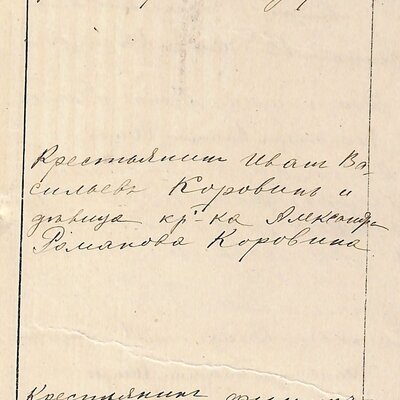 Крестьянинъ Иванъ Ва-
сильевъ Коровинъ и
дѣвица кр-ка Александра
Романова Коровина
Крестьянинъ